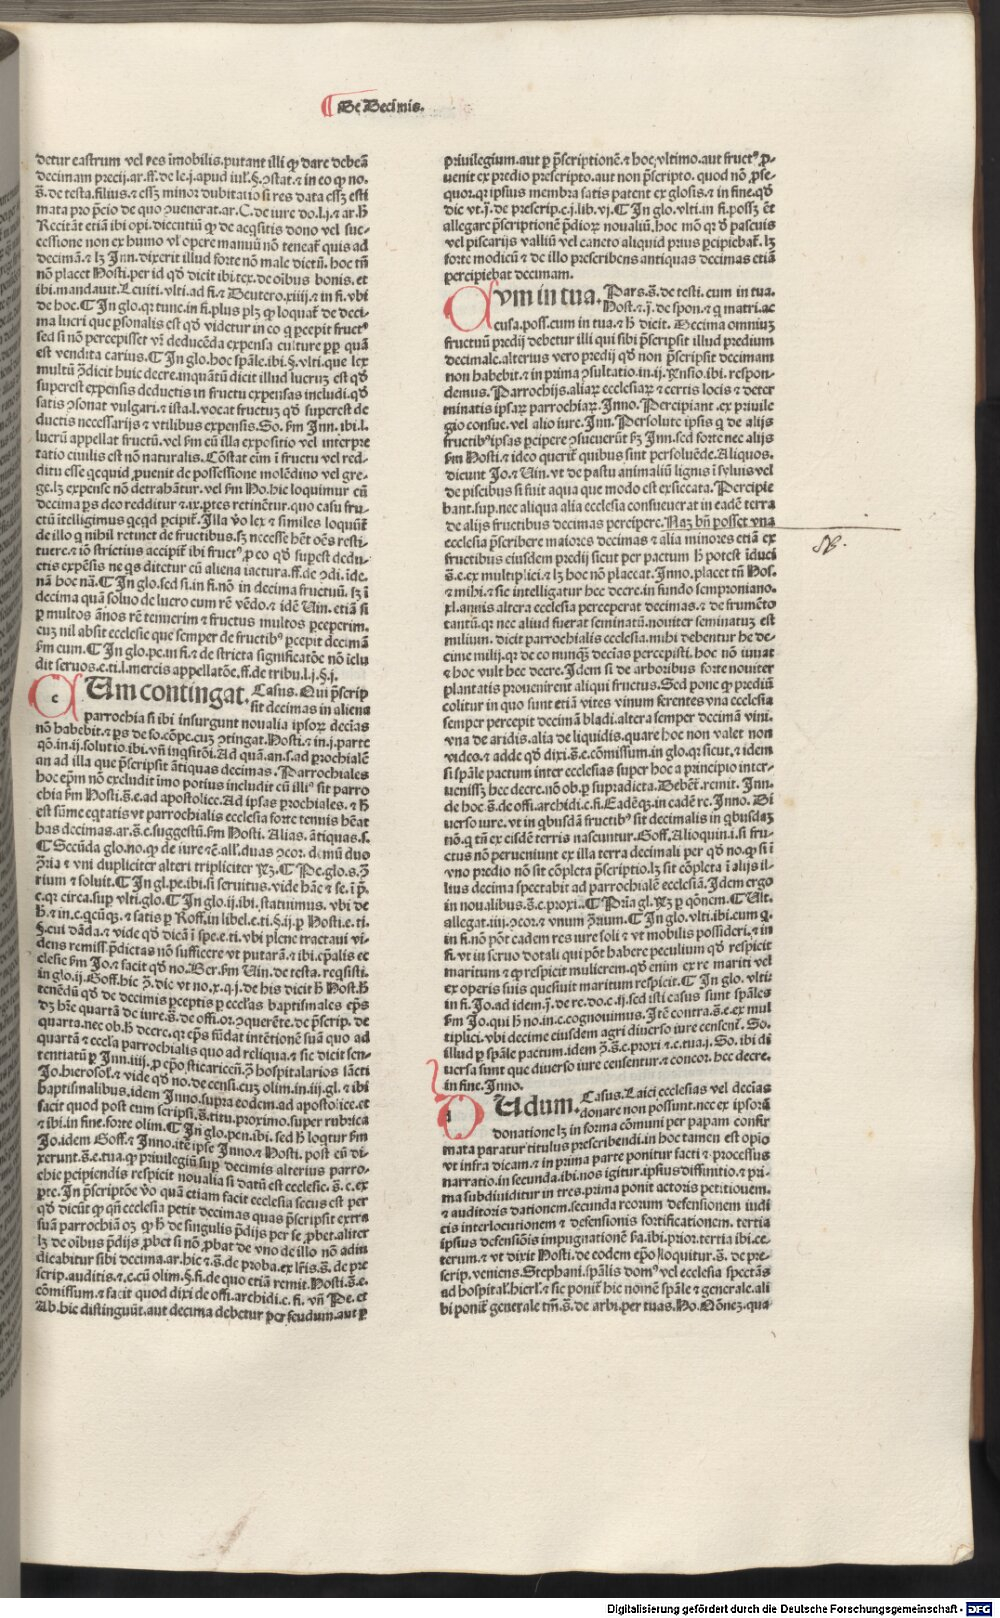 De Decimis.
detur castrum vel res īmobilis. putant illi ꝙ dare debeā
decimam precij. ar. ff. de le. j. apud iul. §. ꝯstat. ⁊ in eo ꝙ no.
s̄. de testa. filius. ⁊ essꝫ minor dubitatio si res data essꝫ esti
mata pro p̄cio de quo ꝯuenerat. ar. C. de iure do. l. j. ⁊ ar. h̄
Recitāt etiā ibi opi. dicentiū ꝙ de acq̄sitis dono vel suc-
cessione non ex humo vl̓ opere manuū nō teneat̄ quis ad
decimā. ⁊ lꝫ Inn. dixerit illud forte nō male dictū. hoc tn̄
nō placet Hosti. per id qd̓ dicit ibi tex. de oībus bonis. et
ibi. mandauit. Leuiti. vlti. ad fi. ⁊ Deutero. xiiij. ⁊ in fi. vbi
de hoc. ¶ In glo. qr tunc. in fi. plus plꝫ ꝙ loquat̄ de deci-
ma lucri que ꝑsonalis est qd̓ videtur in eo q peepit fruct⁹
sed si nō percepisset vn̄ deducēda expensa culture ꝑ quā
est vendita carius. ¶ In glo. hoc spāle. ibi. §. vlti. que lex
multū ꝓdicit huic decre. inquātū dicit illud lucruꝫ est qd̓
superest expensis deductis in fructu expensas includi. qd̓
satis ꝯsonat vulgari. ⁊ ista l. vocat fructuꝫ qd̓ superest de
ductis necessarijs ⁊ vtilibus expensis. So. fm Inn. ibi. l.
lucrū appellat fructū. vel fm eū illa expositio vel interpre
tatio ciuilis est nō naturalis. Cōstat eīm i fructu vel red-
ditu esse qcquid ꝓuenit de possessione molēdino vel gre-
ge. lꝫ expense nō detrahātur. vel fm Ho. hic loquimur cū
decima ꝑs deo redditur ⁊ ix. ꝑtes retinētur. quo casu fru-
ctū itelligimus qcqd pcipit̄. Illa v̄o lex ⁊ similes loquūt̄
de illo q nihil retinet de fructibus. sꝫ necesse hēt oēs resti-
tuere. ⁊ iō strictius accipit̄ ibi fruct⁹. ꝓ eo qd̓ supest dedu-
ctis expēsis ne qs ditetur cū aliena iactura. ff. de ꝯdi. ide.
nā hoc nā. ¶ In glo. sed si. in fi. nō in decima fructuū. lꝫ i
decima quā soluo de lucro cum rē vēdo. ⁊ idē Uin. etiā si
ꝑ multos ānos rē tenuerim ⁊ fructus multos pceperim.
cuꝫ nil absit ecclesie que semper de fructib⁹ pcepit decimā
fm eum. ¶ In glo. pe. in fi. ⁊ de stricta significatōe nō iclu
dit seruos. e. ti. l. mercis appellatōe. ff. de tribu. l. j. §. j.
c Um contingat. Casus. Qui p̄scrip
sit decimas in aliena
parrochia si ibi insurgunt noualia ipsor̄ decīas
nō habebit. ⁊ ꝑs de so. cōpe. cuꝫ ꝯtingat. Hosti. ⁊ in. j. parte
qō. in. ij. solutio. ibi. vn̄ inqsitōi. Ad quā. an. s. ad ꝑochialē
an ad illa que p̄scripsit ātiquas decimas. Parrochiales
hoc epm̄ nō excludit imo potius includit cū illi⁹ sit parro
chia fm Hosti. s̄. e. ad apostolice. Ad ipsas ꝓchiales. ⁊ h̄
est sūme eqtatis vt parrochialis ecclesia forte tennis hēat
has decimas. ar. s̄. e. suggestū. fm Hosti. Alias. ātiquas. s.
¶ Secūda glo. no. ꝙ de iure ⁊ē. all̄. duas ꝯcor. demū duo
ꝫria ⁊ vni dupliciter alteri tripliciter r̄ꝫ. ¶ Pe. glo. s. ꝫ
rium ⁊ soluit. ¶ In gl. pe. ibi. si seruitus. vide hāc ⁊ se. i p̄.
c. qr circa. sup̱ vlti. glo. ¶ In glo. ij. ibi. statuimus. vbi de
h̄. ⁊ in. c. qcūqꝫ. ⁊ satis ꝑ Roff. in libel. e. ti. §. ij. ꝑ Hosti. e. ti.
§. cui dāda. ⁊ vide qd̓ dicā i spe. e. ti. vbi plene tractaui vi-
dens remiss. p̄dictas nō sufficere vt putarā. ⁊ ibi. cp̄alis ec
clesie fm Jo. ⁊ facit qd̓ no. Ber. fm Uin. de testa. reqsisti.
in glo. ij. Goff. hic ꝫ. dic vt no. x. q. j. de his dicit h̄ Host. h̄
tenēdū qd̓ de decimis ꝑceptis ꝑ eccl̄as baptismales ep̄s
dꝫ h̄re quartā de iure. s̄. de offi. or. ꝯquerēte. de p̄scrip. de
quarta. nec ob. h̄ decre. qr ep̄s fūdat intētionē suā quo ad
quartā ⁊ eccl̄a parrochialis quo ad reliqua. ⁊ sic dicit sen-
tentiatū ꝑ Inn. iiij. ꝓ epo sticariceū ꝫ hospitalarios sācti
Jo. hierosol̄. ⁊ vide qd̓ no. de censi. cuꝫ olim. in iij. gl. ⁊ ibi
baptismalibus. idem Inno. supra eodem. ad apostolice. et
facit quod post eum scripsi. s̄. titu. proximo. super rubrica
⁊ ibi. in fine. forte olim. ¶ In glo. pen. ibi. sed h̄ loqtur fm
Jo. idem Goff. ⁊ Inno. itē ipse Inno. ⁊ Hosti. post eū di-
xerunt. s̄. e. tua. ꝙ priuilegiū sup̱ decimis alterius parro-
chie pcipiendis respicit noualia si datū est ecclesie. s̄. e. ex
pte. In p̄scriptōe v̄o quā etiam facit ecclesia secus est per
qd̓ dicūt ꝙ qn̄ ecclesia petit decimas quas p̄scripsit extra
suā parrochiā oꝫ ꝙ h̄ de singulis p̄dijs per se ꝓbet. aliter
lꝫ de oībus p̄dijs ꝓbet si nō ꝓbat de vno de illo nō adiu
dicabitur sibi decima. ar. hic ⁊ s̄. de proba. ex lr̄is. s̄. de pre
scrip. auditis. ⁊. e. cū olim. §. fi. de quo etiā remit. Hosti. s̄. e.
cōmissum. ⁊ facit quod dixi de offi. archidi. c. fi. vn̄ Pe. et
Ab. hic distinguūt. aut decima debetur per feudum. aut ꝑ
priuilegium. aut ꝑ p̄scriptionē. ⁊ hoc. vltimo. aut fruct⁹ ꝓ-
uenit ex predio prescripto. aut non p̄scripto. quod nō ꝓse-
quor. qr ipsius membra satis patent ex glosis. ⁊ in fine. qd̓
dic vt. j̄. de prescrip. c. j. lib. vj. ¶ In glo. vlti. in fi. possꝫ ēt
allegare p̄scriptionē p̄dior̄ noualiū. hoc mō qr d̓ pascuis
vel piscarijs valliū vel caneto aliquid prius pcipiebat̄. lꝫ
forte modicū ⁊ de illo prescribens antiquas decimas etiā
percipiebat decimam.
Cvm in tua. Pars. s̄. de testi. cum in tua.
Host. ⁊. j̄. de spon. ⁊ q matri. ac
cusa. poss. cum in tua. ⁊ h̄ dicit. Decima omniuꝫ
fructuū predij debetur illi qui sibi p̄scripsit illud predium
decimale. alterius vero predij qd̓ non p̄scripsit decimam
non habebit. ⁊ in prima ꝯsultatio. in. ij. r̄nsio. ibi. respon-
demus. Parrochijs. aliar̄ ecclesiar̄ ⁊ certis locis ⁊ deter
minatis ipsar̄ parrochiar̄. Inno. Percipiant. ex priuile
gio consue. vel alio iure. Inn. Persolute ipsis q̄ de alijs
fructib⁹ ipsas pcipere ꝯsueuerūt fꝫ Inn. sed forte nec alijs
fm Hosti. ⁊ ideo querit̄ quibus sint persoluēde. Aliquos.
dicunt Jo. ⁊ Uin. vt de pastu animaliū lignis i siluis vel
de piscibus si fuit aqua que modo est exsiccata. Percipie
bant. sup. nec aliqua alia ecclesia consueuerat in eadē terra
de alijs fructibus decimas percipere. Naꝫ bn̄ posset vna
ecclesia p̄scribere maiores decimas ⁊ alia minores etiā ex
fructibus eiusdem predij sicut per pactum h̄ potest iduci
s̄. e. ex multiplici. ⁊ lꝫ hoc nō placeat. Inno. placet tn̄ Hos.
⁊ mihi. ⁊ sic intelligatur hec decre. in fundo semproniano.
xl. annis altera ecclesia perceperat decimas. ⁊ de frumēto
tantū. qr nec aliud fuerat seminatū. nouiter seminatuꝫ est
milium. dicit parrochialis ecclesia. mihi debentur he de-
cime milij. qr de eo nunqꝫ decīas percepisti. hoc nō iuuat
⁊ hoc vult hec decre. Idem si de arboribus forte nouiter
plantatis prouenirent aliqui fructus. Sed pone ꝙ prediū
colitur in quo sunt etiā vites vinum ferentes vna ecclesia
semper percepit decimā bladi. altera semper decimā vini.
vna de aridis. alia de liquidis. quare hoc non valet non
video. ⁊ adde qd̓ dixi. s̄. e. cōmissum. in glo. qr sicut. ⁊ idem
si spāle pactum inter ecclesias super hoc a principio inter-
uenissꝫ hec decre. nō ob. ꝑ supradicta. Debet̄. remit. Inn.
de hoc. s̄. de offi. archidi. c. fi. Eadēqꝫ. in eadē re. Inno. Di
uerso iure. vt in qbusdā fructib⁹ sit decimalis in qbusdaꝫ
nō. q tn̄ ex eisdē terris nascuntur. Goff. Alioquin. i. si fru-
ctus nō perueniunt ex illa terra decimali per qd̓ no. ꝙ si i
vno predio nō sit cōpleta p̄scriptio. lꝫ sit cōpleta i alijs il-
lius decima spectabit ad parrochialē ecclesiā. Idem ergo
in noualibus. s̄. e. proxi. ¶ Pria gl. r̄ꝫ ꝑ qōnem. ¶ Ult.
allegat. iiij. ꝯcor. ⁊ vnum ꝫrium. ¶ In glo. vlti. ibi. cum q.
in fi. nō pōt eadem res iure soli ⁊ vt mobilis possideri. ⁊ in
fi. vt in seruo dotali qui pōt habere peculium qd̓ respicit
maritum ⁊ ꝙ respicit mulierem. qd̓ enim ex re mariti vel
ex operis suis quesiuit maritum respicit. ¶ In glo. vlti.
in fi. Jo. ad idem. j̄. de re. do. c. ij. sed isti casus sunt spāles
fm Jo. qui h̄ no. in. c. cognouimus. Itē contra. s̄. e. ex mul
tiplici. vbi decime eiusdem agri diuerso iure censent̄. So.
illud ꝑ spāle pactum. idem ꝫ. s̄. e. proxi ⁊ c. tua. j. So. ibi di
uersa sunt que diuerso iure censentur. ⁊ concor. hec decre.
in fine. Inno.
d Udum. Casus. Laici ecclesias vel decīas
donare non possunt. nec ex ipsorū
donatione lꝫ in forma cōmuni per papam confir
mata paratur titulus prescribendi. in hoc tamen est opio
vt infra dicam. ⁊ in prima parte ponitur facti ⁊ processus
narratio. in secunda. ibi. nos igitur. ipsius diffinitio. ⁊ pri-
ma subdiuiditur in tres. prima ponit actoris petitionem.
⁊ auditoris dationem. secunda reorum defensionem iudi
cis interlocutionem ⁊ defensionis fortificationem. tertia
ipsus defensiōis impugnationē s̄a. ibi. prior. tertia ibi. ce-
terum. ⁊ vt dixit Hosti. de eodem ep̄o loquitur. s̄. de pre-
scrip. veniens. Stephani. sp̄alis dom⁹ vel ecclesia spectās
ad hospital̄. hierl̄. ⁊ sic ponit̄ hic nomē spāle ⁊ generale. ali
bi ponit̄ generale tm̄. s̄. de arbi. per tuas. Ho. Nōneꝫ. qua-
Digitalisierung gefördert durch die Deutsche Forschungsgemeinschaft - DFG